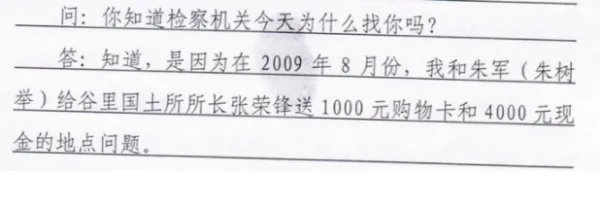 问：你知道检察机关今天为什么找你吗？
答：知道，是因为在 2009 年 8 月份，我和朱军（朱树
举）给谷里国土所所长张荣锋送 1000 元购物卡和 4000 元现
金的地点问题。